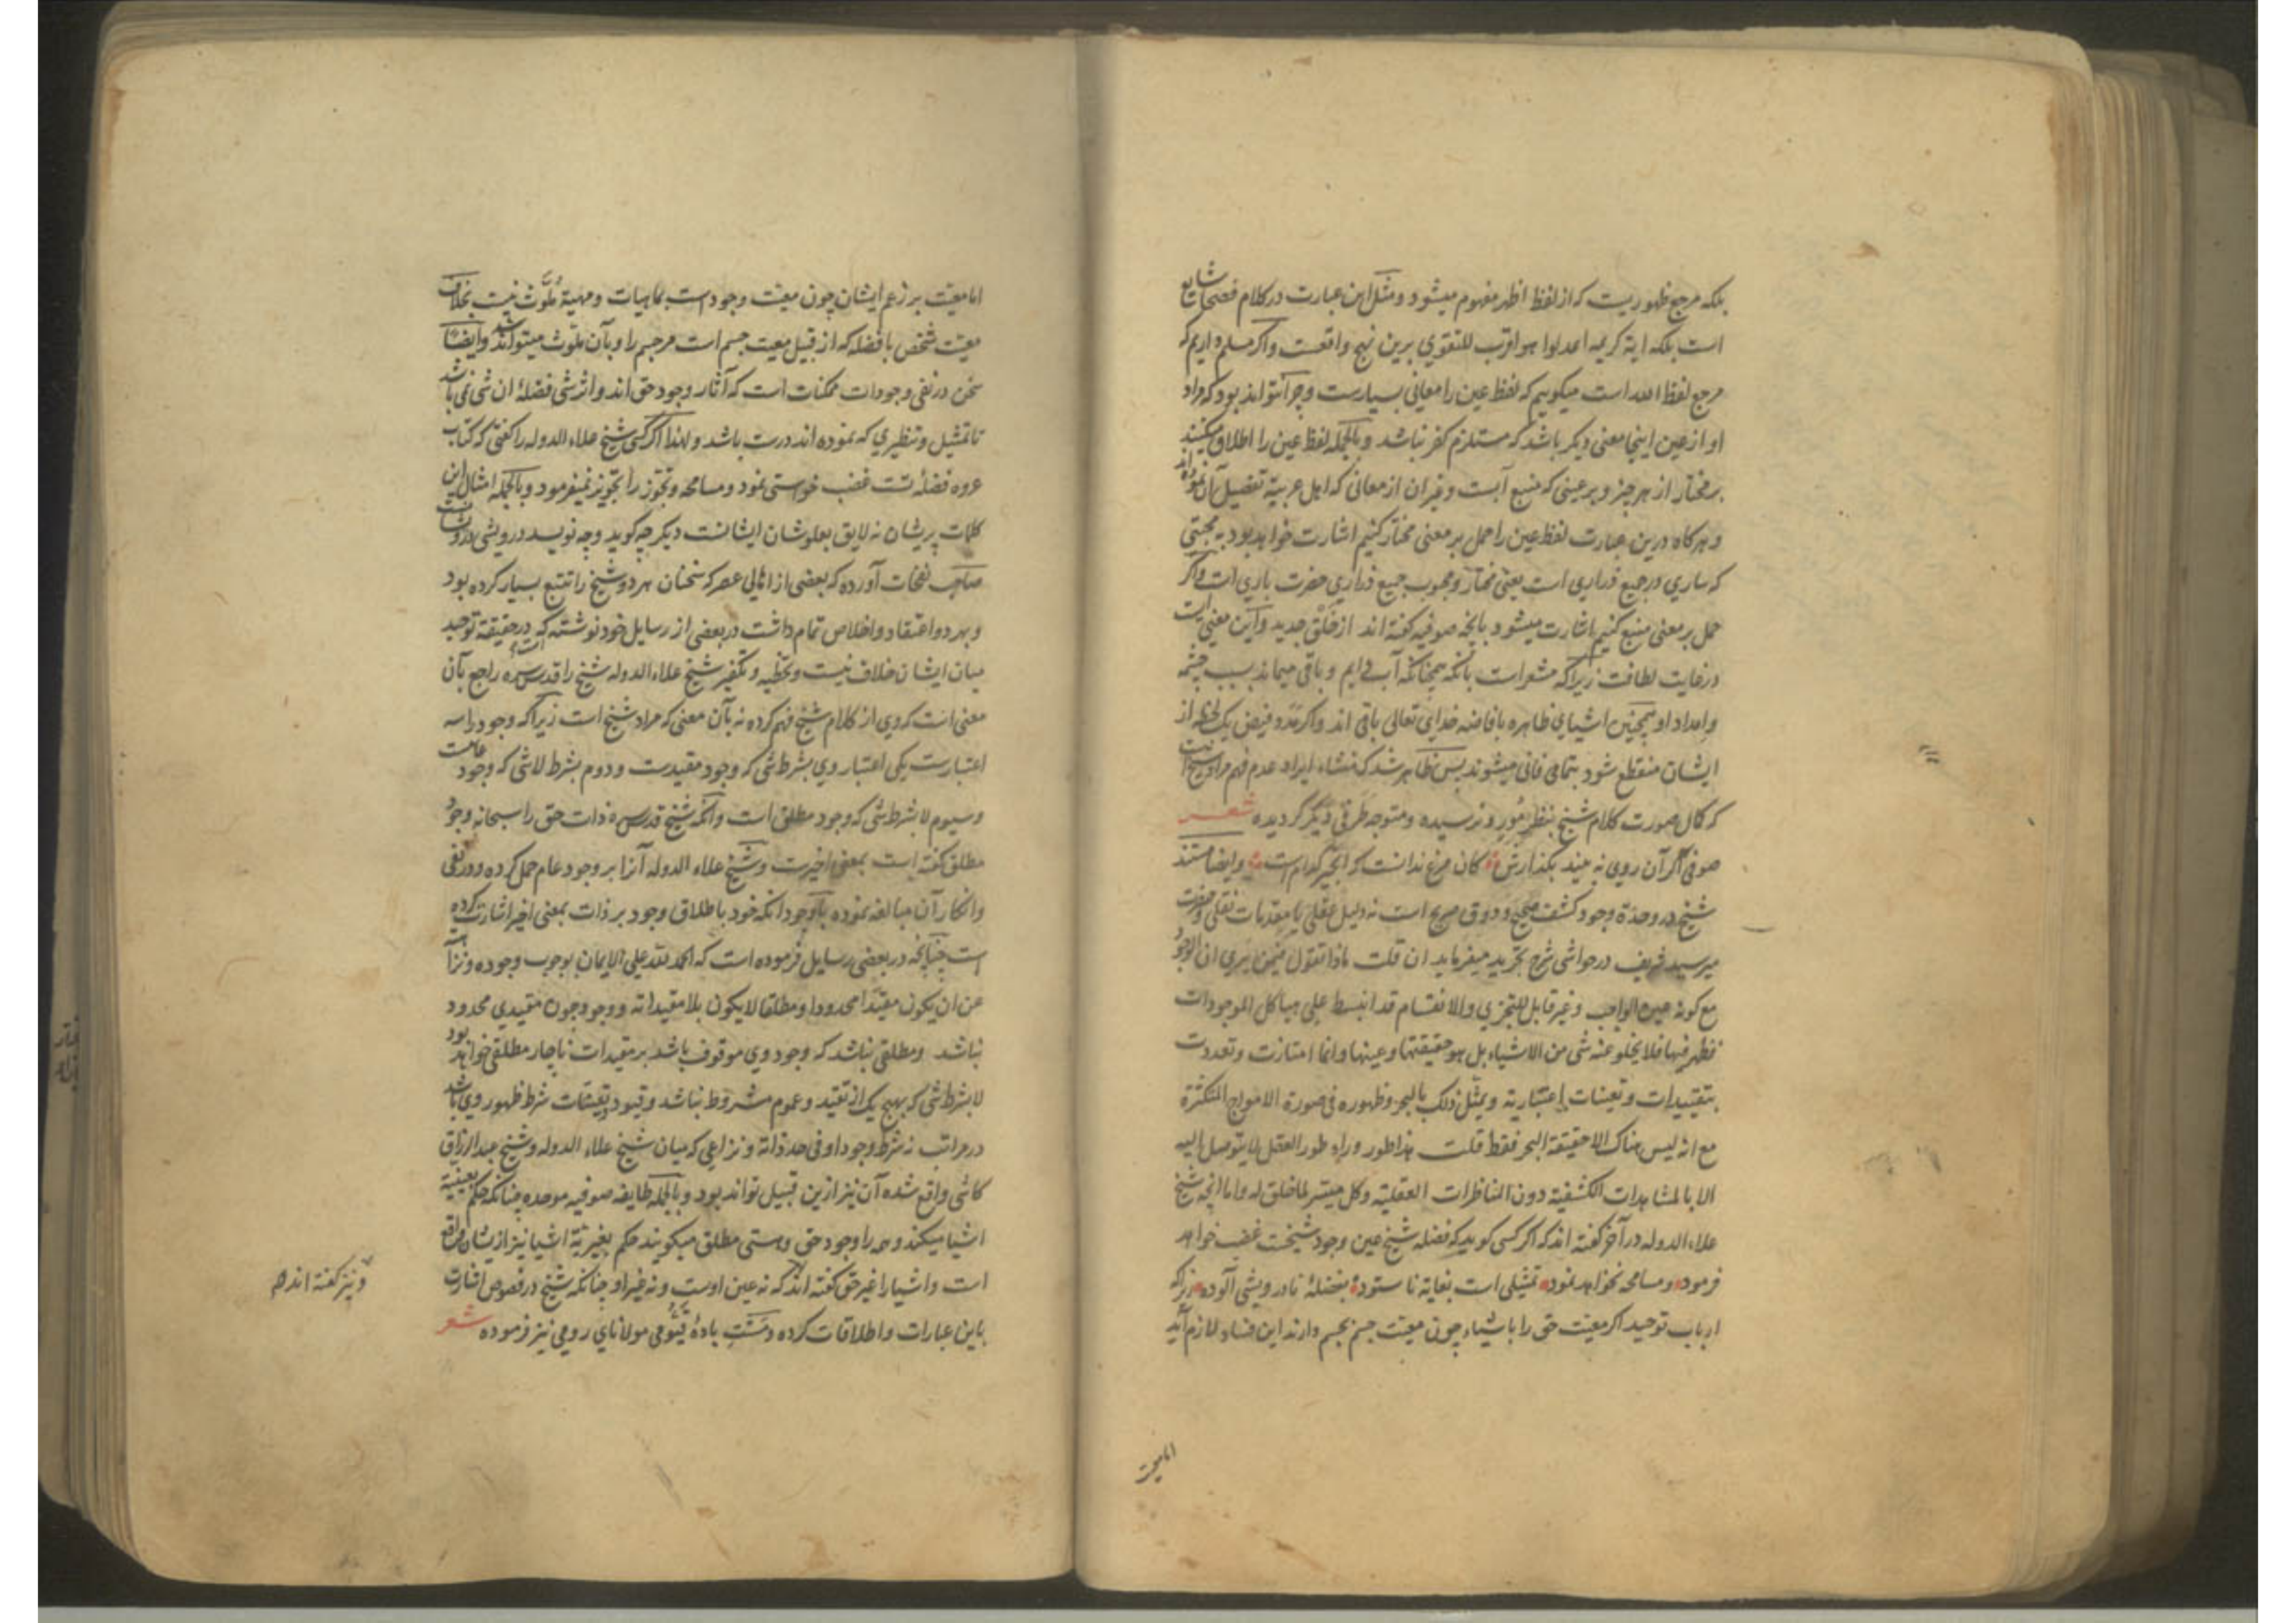 بلکه مرجع ظهوریست که از لفظ اظهر مفهوم میشود و مثل این عبارت در کلام فصحا شایع
است بلکه ایة کریمه اعدلوا هو اقرب للتقوی برین نهج واقعست و اگر مسلم داریم که
مرجع لفظ الله است میکوییم که لفظ عین را معانی بسیارست و چرا نتواند بود که مراد
او از عین اینجا معنی دیکر باشد که مستلزم کفر نباشد و بالجمله لفظ عین را اطلاق میکنند
بر مختار از هر چیز و بر عینی که منبع آبست و غیر ان از معانی که اهل عربیة تفصیل آن نموده اند
و هرکاه درین عبارت لفظ عین را حمل بر معنی مختار کنیم اشارت خواهد بود به محبتی
که ساری در جمیع ذراری است یعنی مختار و محبوب جمیع ذراری حضرت باری است و اگر
حمل بر معنی منبع کنیم اشارت میشود بانچه صوفیه کفته اند از خلق جدید و این معنی است
در غایت لطافت زیرا که مشعر است بانکه همچنانکه آب دایم و باقی میماند بسبب چشمه
و امداد او همچنین اشیای ظاهره بافاضه خدای تعالی باقی اند و اکر مدد فیض یک لحظه از
ایشان منقطع شود بتمامی فانی میشوند پس ظاهر شد که منشاء ایراد عدم فهم مراد شیخ است
که کمال صورت کلام شیخ بنظر مورد نرسیده و متوجه طرفی دیگر کردیده شعر
صوفی اگر آن روی نه بیند بگذارش کان مرغ ندانست که انجیر کدام است و ایضا مستند
شیخ در وحدة وجود کشف صحیح و ذوق صریح است نه دلیل عقلی یا مقدمات نقلی و حضرت
میر سید شریف در حواشی شرح تجرید میفرماید ان قلت ماذا تقول فیمن یری ان الوجود
مع کونه عین الواجب و غیر قابل للتجزی والانقسام قد انبسط علی هیاکل الموجودات
فظهر فیها فلا یخلو عنه شی من الاشیاء بل هو حقیقتها و عینها وانما امتازت و تعددت
بتقییدات و تعینات اعتباریة و یمثل ذلک بالبحر و ظهوره فی صورة الامواج المتکثرة
مع انه لیس هناک الا حقیقة البحر فقط قلت هذا طور وراء طور العقل لا یتوصل الیه
الا بالمشاهدات الکشفیة دون المناظرات العقلیة و کل میسر لما خلق له و اما انچه شیخ
علاء الدوله در آخر کفته اند که اکر کسی کوید که فضله شیخ عین وجود شیخست غضب خواهد
فرمود و مسامحه نخواهد نمود تمثیلی است بغایة ناستوده بفضلهٔ نادرویشی آلوده زیراکه
ارباب توحید اکر معیت حق را با شیاء چون معیت جسم بجسم دارند این فساد لازم آید
اما معیت
اما معیت بر زعم ایشان چون معیت وجود است بماهیات و مهیة ملوث نیست بخلاف
معیت شخص با فضله که از قبیل معیت جسم است مر جسم را و بآن ملوث میتواند شد و ایضا
سخن در نفی وجودات ممکنات است که آثار وجود حق اند و اثر شی فضلهٔ ان شی نمی باشد
تا تمثیل و تنظیری که نموده اند درست باشد و لهذا اکر کسی شیخ علاء الدوله را کفتی که کتاب
عروه فضلهٔ تست غضب خواستی نمود و مسامحه و تجوز را تجویز نمیفرمود و بالجمله امثال این
کلمات پریشان نه لایق بعلو شان ایشانست دیکر چه کوید و چه نویسد درویشی
صاحب نفحات آورده که بعضی از اهالی عصر که سخنان هر دو شیخ را تتبع بسیار کرده بود
و بهر دو اعتقاد و اخلاص تمام داشت در بعضی از رسایل خود نوشته که در حقیقة توحید
میان ایشان خلاف نیست و تخطیه و تکفیر شیخ علاء الدوله شیخ را قدس سره راجع بآن
معنی است که وی از کلام شیخ فهم کرده نه بآن معنی که مراد شیخ است زیرا که وجود را سه
اعتبارست یکی اعتبار وی بشرط شی که وجود مقیدست و دوم بشرط لا شی که وجود عامست
و سیوم لا بشرط شی که وجود مطلق است و آنکه شیخ قدس سره ذات حق را سبحانه وجود
مطلق کفته است بمعنی اخیرست و شیخ علاء الدوله آنرا بر وجود عام حمل کرده و در نفی
و انکار آن مبالغه نموده با وجود انکه خود باطلاق وجود بر ذات بمعنی اخیر اشارت کرده
است چنانچه در بعضی رسایل فرموده است که الحمد لله علی الایمان بوجوب وجوده و نزاهته
عن ان یکون مقیدا محدودا و مطلقا لا یکون بلا مقیداته وجود چون مقیدی محدود
نباشد و مطلقی نباشد که وجود وی موقوف باشد بر مقیدات ناچار مطلقی خواهد بود
لا بشرط شی که بهیچ یک از تقید و عموم مشروط نباشد و قیود و تعینات شرط ظهور وی باشد
در مراتب نه شرط وجود او فی حد ذاته و نزاعی که میان شیخ علاء الدوله و شیخ عبد الرزاق
کاشی واقع شده آن نیز ازین قبیل تواند بود و بالجمله طایفه صوفیه موحده چنانکه حکم بعینیة
اشیا میکنند و همه را وجود حق و هستی مطلق میکویند حکم بغیریة اشیا نیز ازیشان واقع
است و اشیا را غیر حق کفته اند که نه عین اوست و نه غیر او چنانکه شیخ در فصوص اشارت
باین عبارات و اطلاقات کرده و مست بادهٔ قیومی مولانای رومی نیز فرموده شعر
و نیز کفته اند